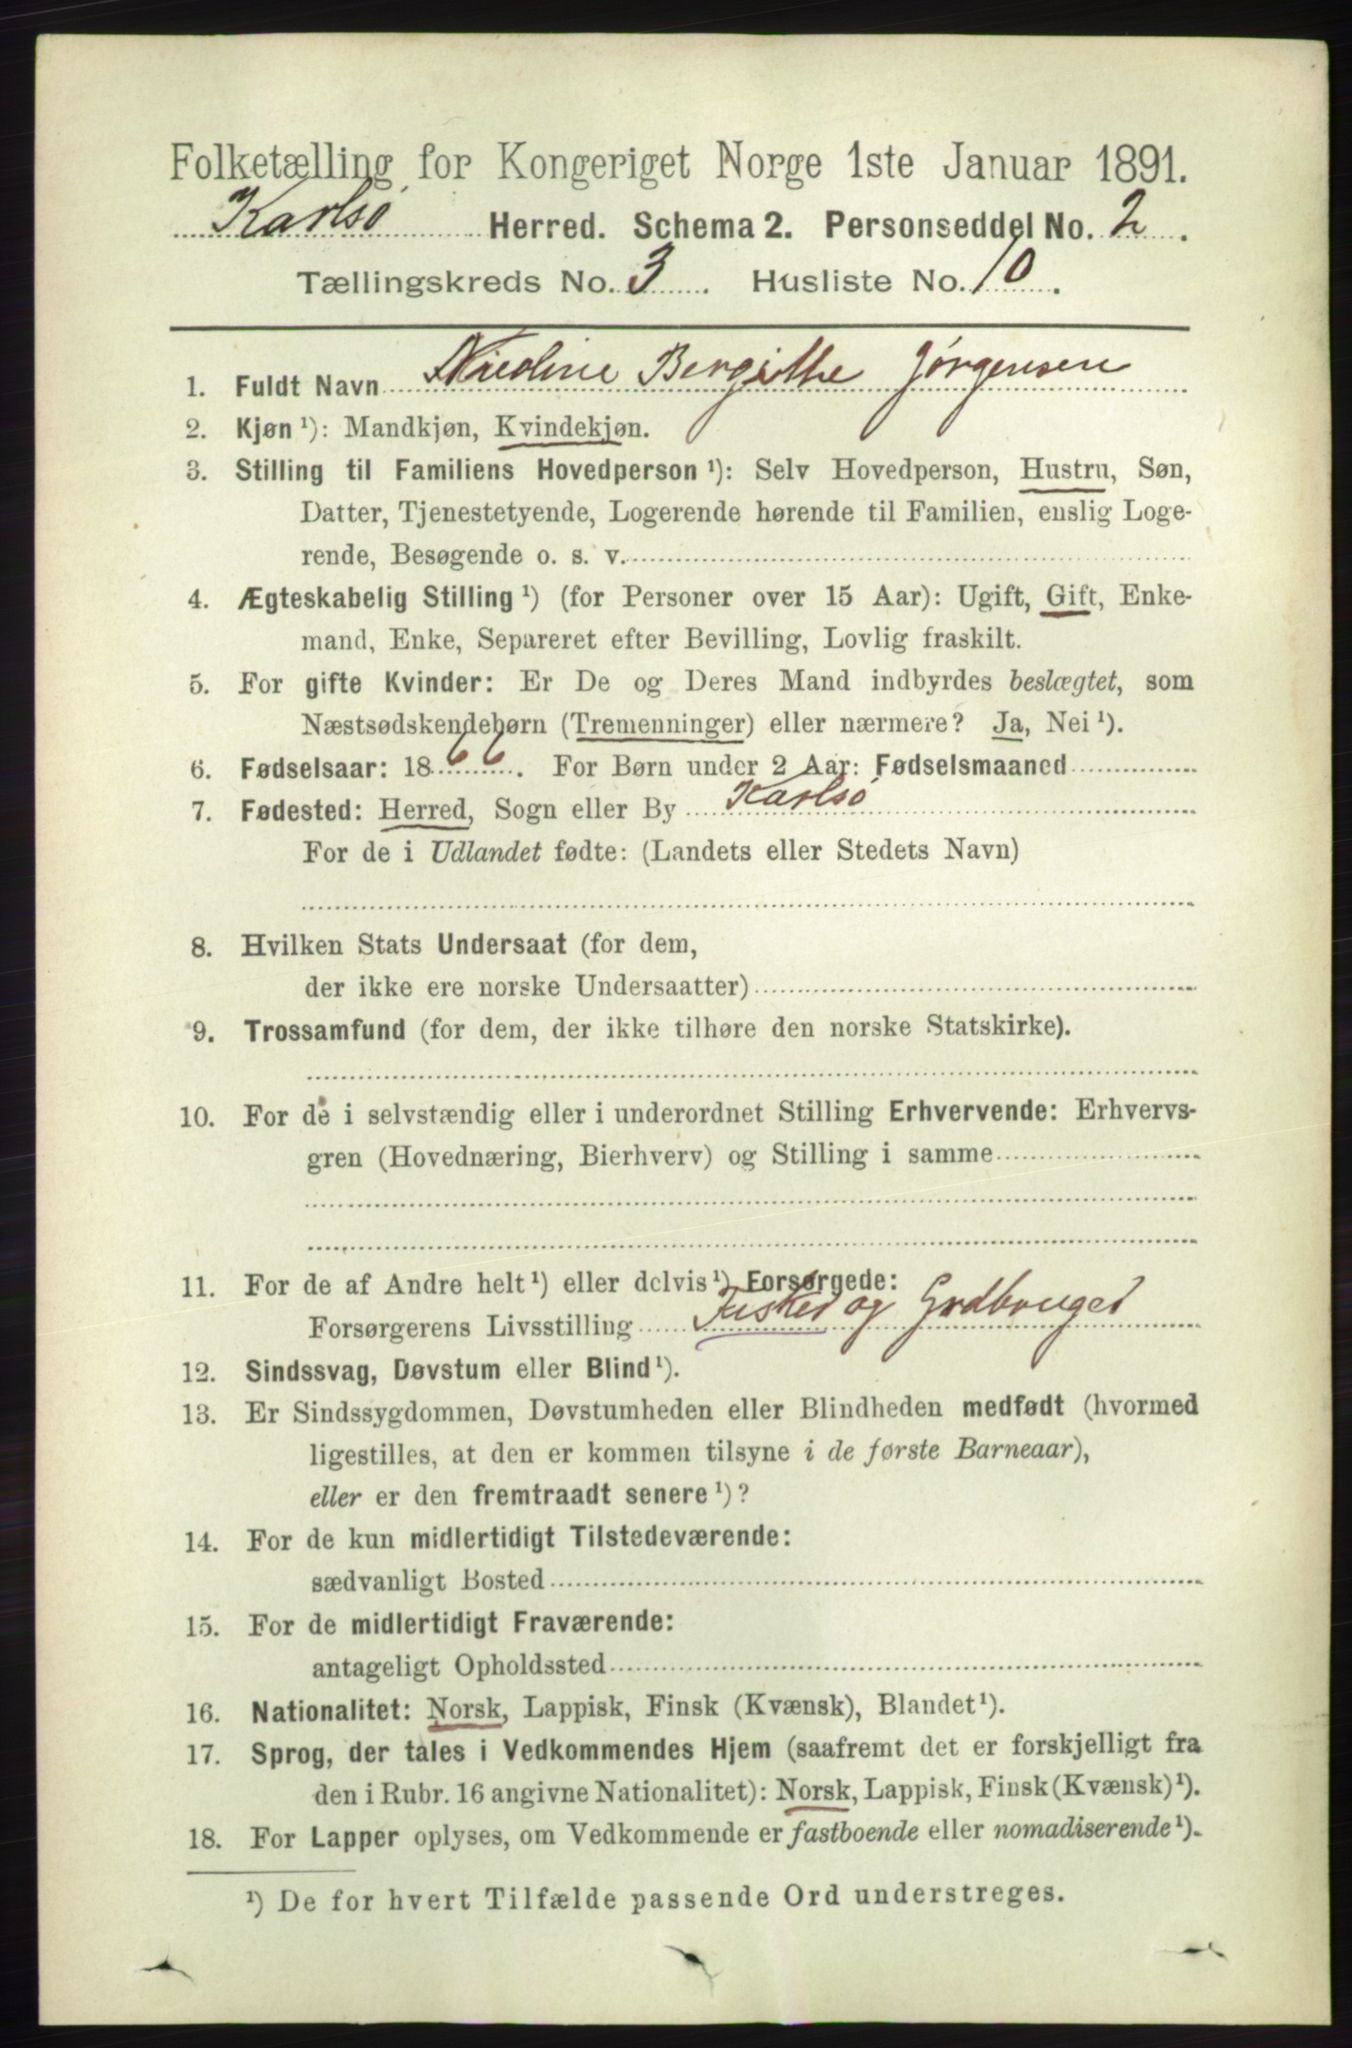 Folketælling for Kongeriget Norge 1ste Januar 1891.
Karlsö Herred. Schema 2. Personseddel No. 2.
Tællingskreds No. 3. Husliste No. 10.
1. Fuldt Navn Nicoline Bergithe Jörgensen
2. Kjøn ¹): Mandkjøn, Kvindekjøn.
3. Stilling til Familiens Hovedperson ¹): Selv Hovedperson, Hustru, Søn,
Datter, Tjenestetyende, Logerende hørende til Familien, enslig Loge-
rende, Besøgende o. s. v.
4. Ægteskabelig Stilling ¹) (for Personer over 15 Aar): Ugift, Gift, Enke-
mand, Enke, Separeret efter Bevilling, Lovlig fraskilt.
5. For gifte Kvinder: Er De og Deres Mand indbyrdes beslægtet, som
Næstsødskendebørn (Tremenninger) eller nærmere? Ja, Nei ¹).
6. Fødselsaar: 1866. For Børn under 2 Aar: Fødselsmaaned
7. Fødested: Herred, Sogn eller By Karlsö
For de i Udlandet fødte: (Landets eller Stedets Navn)
8. Hvilken Stats Undersaat (for dem,
der ikke ere norske Undersaatter)
9. Trossamfund (for dem, der ikke tilhøre den norske Statskirke).
10. For de i selvstændig eller i underordnet Stilling Erhvervende: Erhvervs-
gren (Hovednæring, Bierhverv) og Stilling i samme
11. For de af Andre helt ¹) eller delvis ¹) Forsørgede:
Forsørgerens Livsstilling Fisker og Grdbruger
12. Sindssvag, Døvstum eller Blind ¹).
13. Er Sindssygdommen, Døvstumheden eller Blindheden medfødt (hvormed
ligestilles, at den er kommen tilsyne i de første Barneaar),
eller er den fremtraadt senere ¹)?
14. For de kun midlertidigt Tilstedeværende:
sædvanligt Bosted
15. For de midlertidigt Fraværende:
antageligt Opholdssted
16. Nationalitet: Norsk, Lappisk, Finsk (Kvænsk), Blandet ¹).
17. Sprog, der tales i Vedkommendes Hjem (saafremt det er forskjelligt fra
den i Rubr. 16 angivne Nationalitet): Norsk, Lappisk, Finsk (Kvænsk) ¹).
18. For Lapper oplyses, om Vedkommende er fastboende eller nomadiserende ¹).
¹) De for hvert Tilfælde passende Ord understreges.